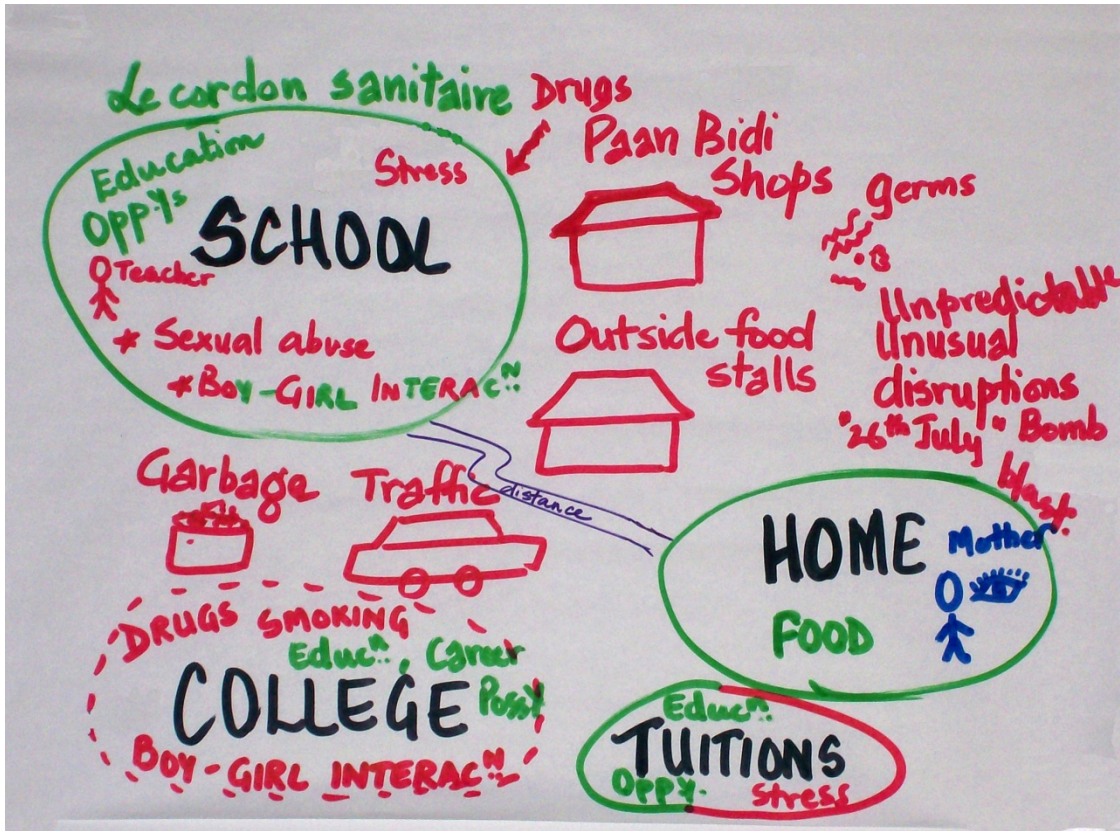 Le cordon sanitaire
Education
Oppys
Stress
SCHOOL
Teacher
* Sexual abuse
* BOY-GIRL INTERACN
Drugs
Paan Bidi
Shops
germs
Outside food
stalls
Unpredictable
Unusual
disruptions
"26th July" Bomb
blast.
Garbage
Traffic
distance
HOME
Mother
FOOD
DRUGS SMOKING
Educn, Career
COLLEGE
Possy
BOY-GIRL INTERACN
Educn
TUITIONS
Oppy.
Stress